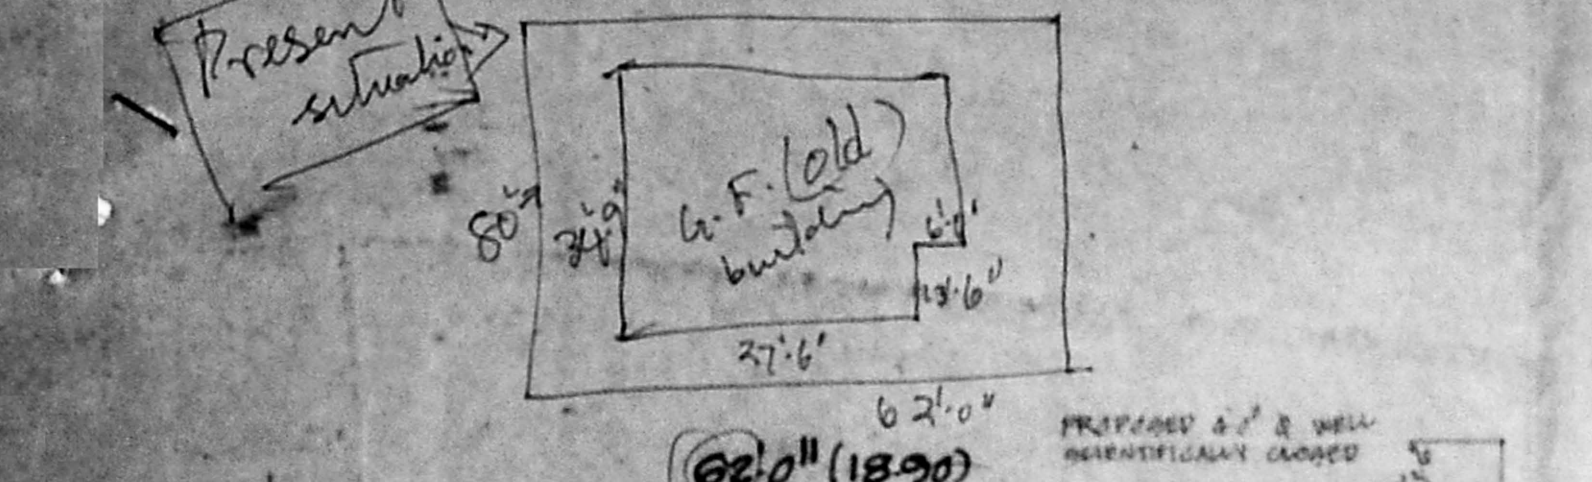 Present
situation
G.F. (old)
building
80'
34'9"
6'.0"
13'.6"
27'.6"
62'.0"
62'.0" (18.90)
PROPOSED & WELL
SCIENTIFICALLY CLOSED